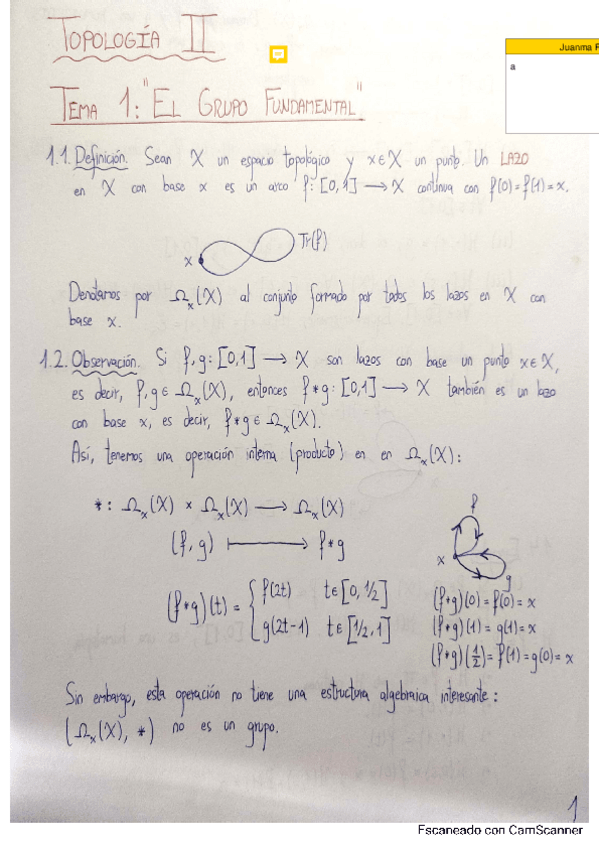 TOPOLOGÍA II
Juanma P
a
TEMA 1: "EL GRUPO FUNDAMENTAL"
1.1. Definición. Sean X un espacio topológico y x∈X un punto. Un LAZO
en X con base x es un arco f: [0,1] → X continua con f(0)=f(1)=x.
x Tr(f)
Denotamos por Ω_x(X) al conjunto formado por todos los lazos en X con
base x.
1.2. Observación. Si f,g: [0,1] → X son lazos con base un punto x∈X,
es decir, f,g ∈ Ω_x(X), entonces f*g: [0,1] → X también es un lazo
con base x, es decir, f*g ∈ Ω_x(X).
Así, tenemos una operación interna (producto) en en Ω_x(X):
*: Ω_x(X) × Ω_x(X) → Ω_x(X)
(f,g) ↦ f*g
f
x
g
(f*g)(t) = { f(2t) t∈[0,1/2]
g(2t-1) t∈[1/2,1]
(f*g)(0) = f(0) = x
(f*g)(1) = g(1) = x
(f*g)(1/2) = f(1) = g(0) = x
Sin embargo, esta operación no tiene una estructura algebraica interesante:
(Ω_x(X), *) no es un grupo.
1
Escaneado con CamScanner